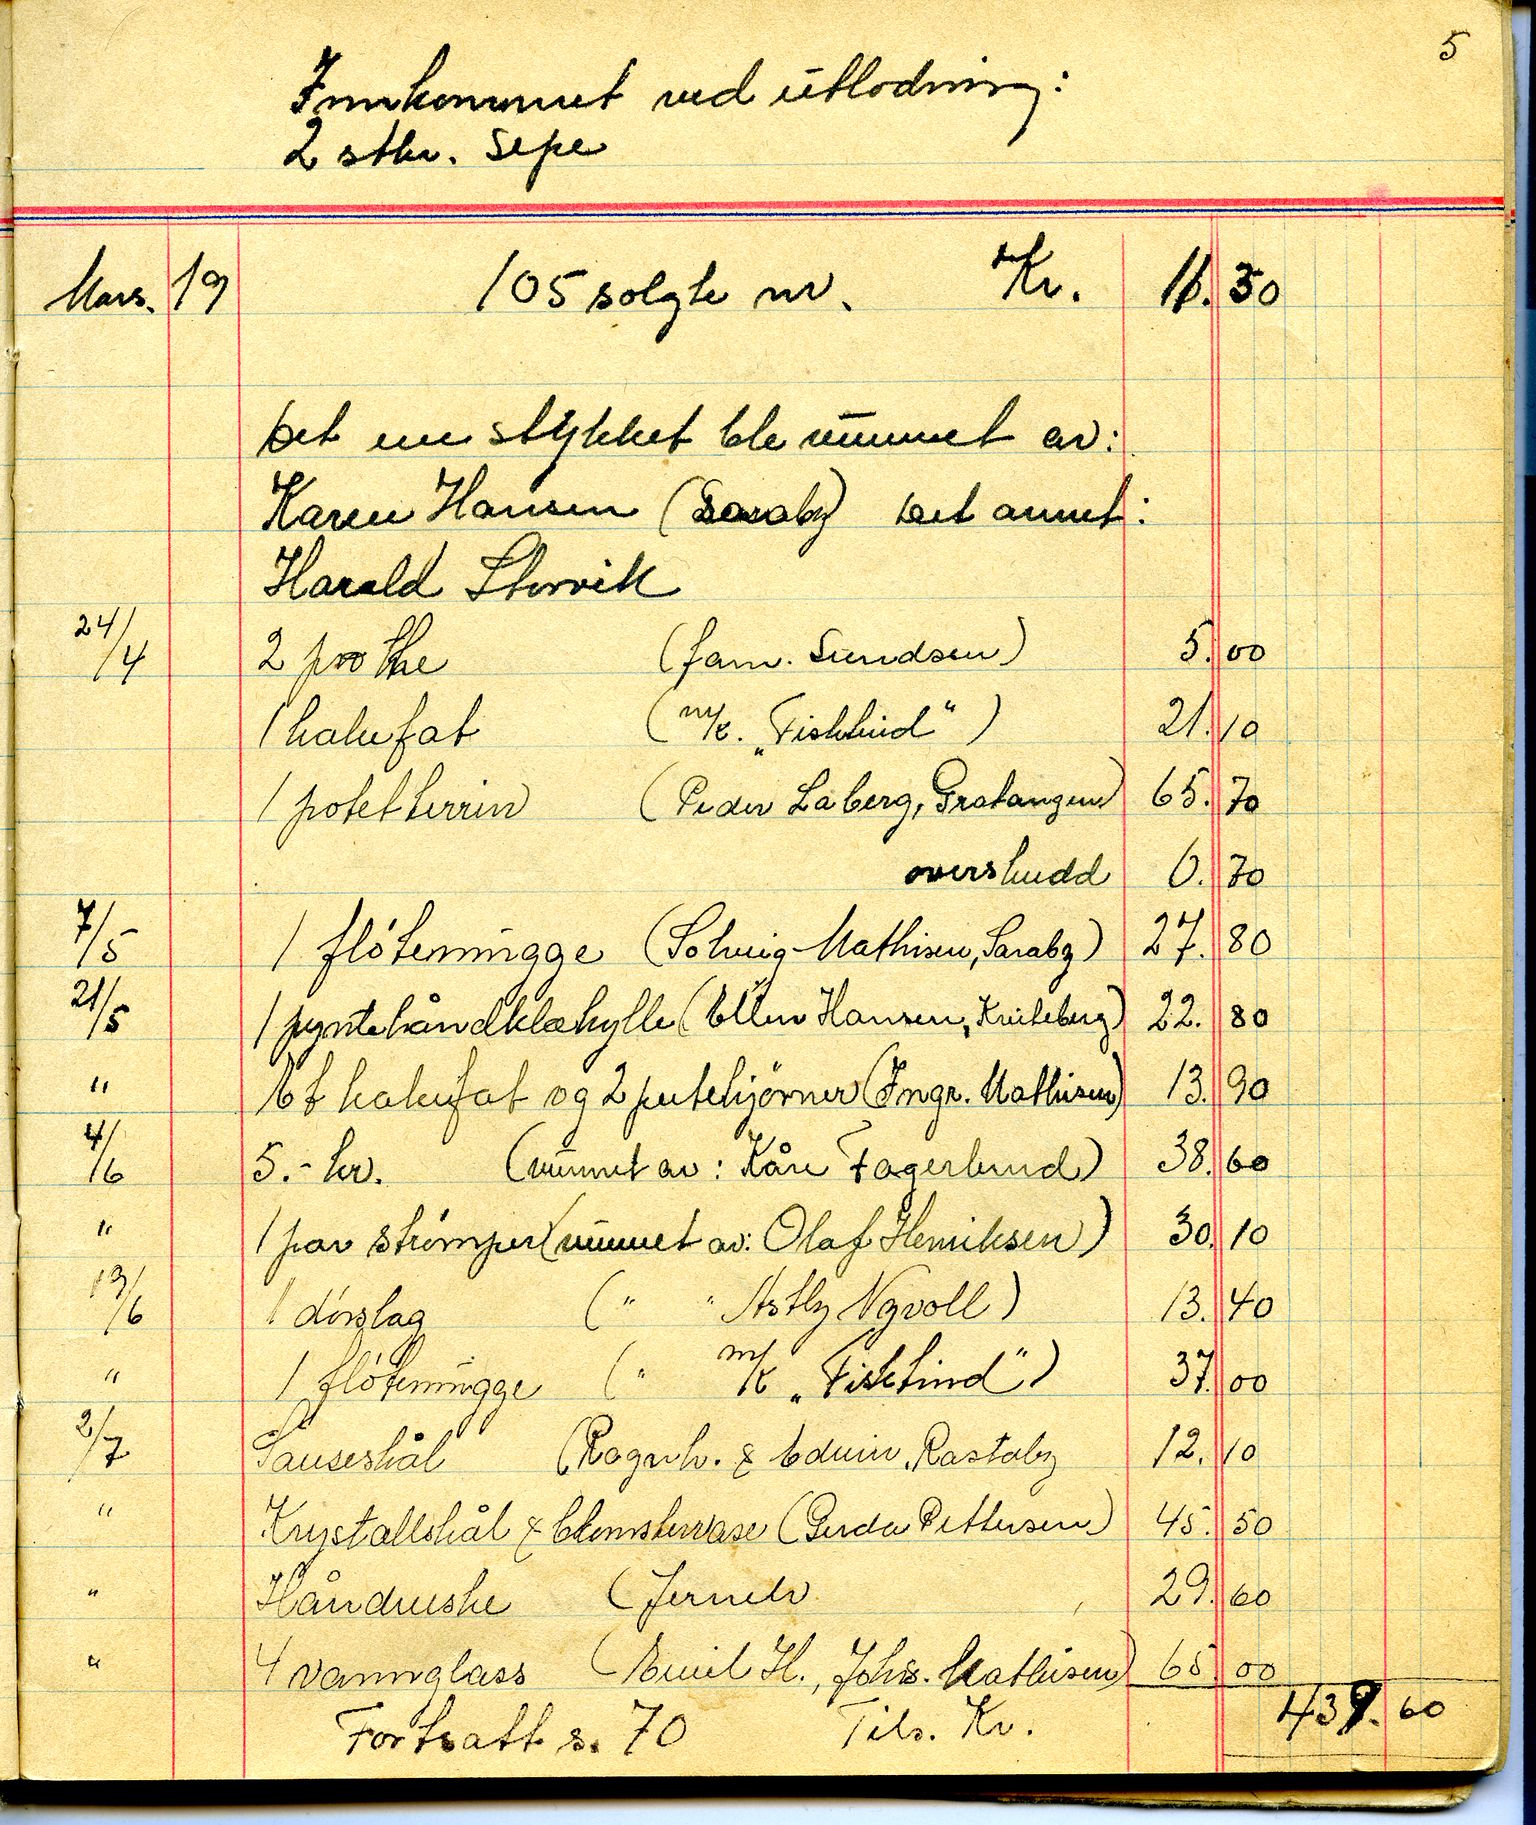 5
Innkommet ved utlodning:
2 stkr. sepe
Mars. 19 105 solgte nr. Kr. 11. 30
Det ene stykket ble vunnet av:
Karen Hansen (Saraby) Det annet:
Harald Storvik
24/4 2 pro the (fam. Sundsen) 5. 00
1 kakefat (m/k. „Fiskhind“) 21. 10
1 potetterrin (Peder Laberg, Gratangen) 65. 70
overskudd 0. 70
7/5 1 fløtemugge (Solveig Mathisen, Saraby) 27. 80
21/5 1 pyntehåndklæhylle (Ellen Hansen, Kviteberg) 22. 80
" Et kakefat og 2 putehjørner (Ingr. Mathisen) 13. 90
4/6 5.- kr. (vunnet av: Kåre Fagerlund) 38. 60
" 1 par strømper (vunnet av: Olaf Henriksen) 30. 10
13/6 1 dørslag (" " Astly Nyvoll) 13. 40
" 1 fløtemugge (" m/k „Fiskhind“) 37. 00
2/7 Sauseskål (Ragnh. & Edvin, Rastaby 12. 10
" Krystallskål & blomstervase (Gerda Pettersen) 45. 50
" Håndveske (Jernelv 29. 60
" 4 vannglass (Emil H., Johs. Mathisen) 65 00
Fortsatt s. 70 Tils. Kr. 439. 60